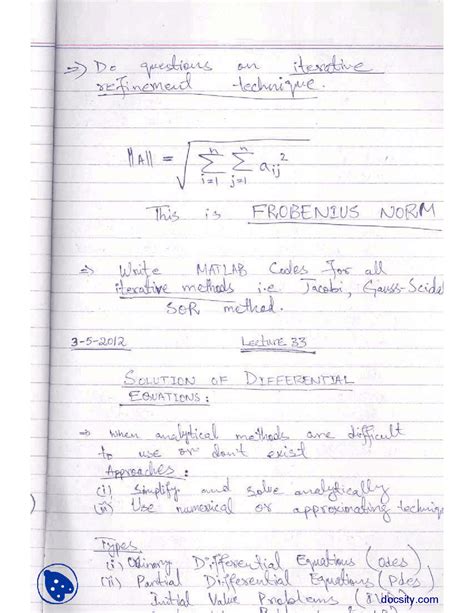 ⇒ Do questions on iterative
refinement technique.
||A|| = √ n Σ i=1 n Σ j=1 aij²
This is FROBENIUS NORM
⇒ Write MATLAB Codes for all
iterative methods i.e Jacobi, Gauss-Seidel
SOR method.
3-5-2012 Lecture 33
SOLUTION OF DIFFERENTIAL
EQUATIONS:
⇒ when analytical methods are difficult
to use or don't exist
Approaches:
(i) Simplify and solve analytically
(ii) Use numerical or approximating technique
Types
(i) Ordinary Differential Equations (odes)
(ii) Partial Differential Equations (Pdes)
Initial Value Problems
docsity.com